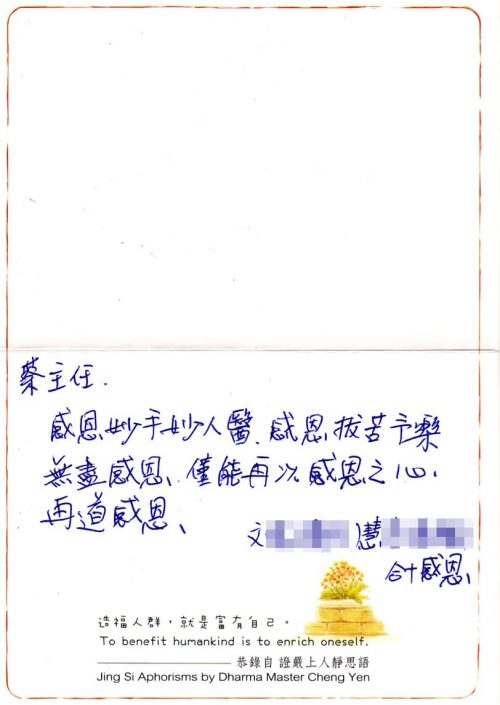 蔡主任.
感恩妙手妙人醫、感恩拔苦予樂
無盡感恩、僅能再以感恩之心、
再道感恩、
文 慧
合十感恩、
造福人群，就是富有自己。
To benefit humankind is to enrich oneself.
恭錄自 證嚴上人靜思語
Jing Si Aphorisms by Dharma Master Cheng Yen